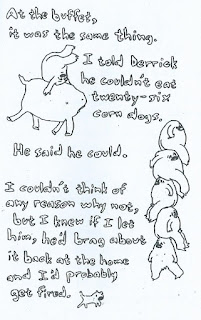 At the buffet,
it was the same thing.
I told Derrick
he couldn't eat
twenty-six
corn dogs.
He said he could.
I couldn't think of
any reason why not,
but I knew if I let
him, he'd brag about
it back at the home
and I'd probably
get fired.